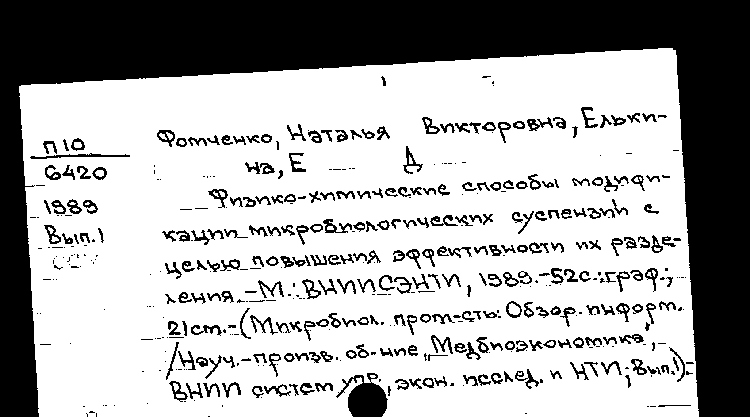 П 10
6420
1989
Вып.1
Фотченко, Наталья Викторовна, Ельки-
на, Е Д
Физико-химические способы модифи-
кации микробиологических суспензий с
целью повышения эффективности их разде-
ления.-М.: ВНИИСЭНТИ, 1989.-52с.:граф.;
21см.-(Микробиол. пром-сть: Обзор. информ.
/Науч.-произв. об-ние „Медбиоэкономика",-
ВНИИ систем упр., экон. исслед. и НТИ; Вып.1).-